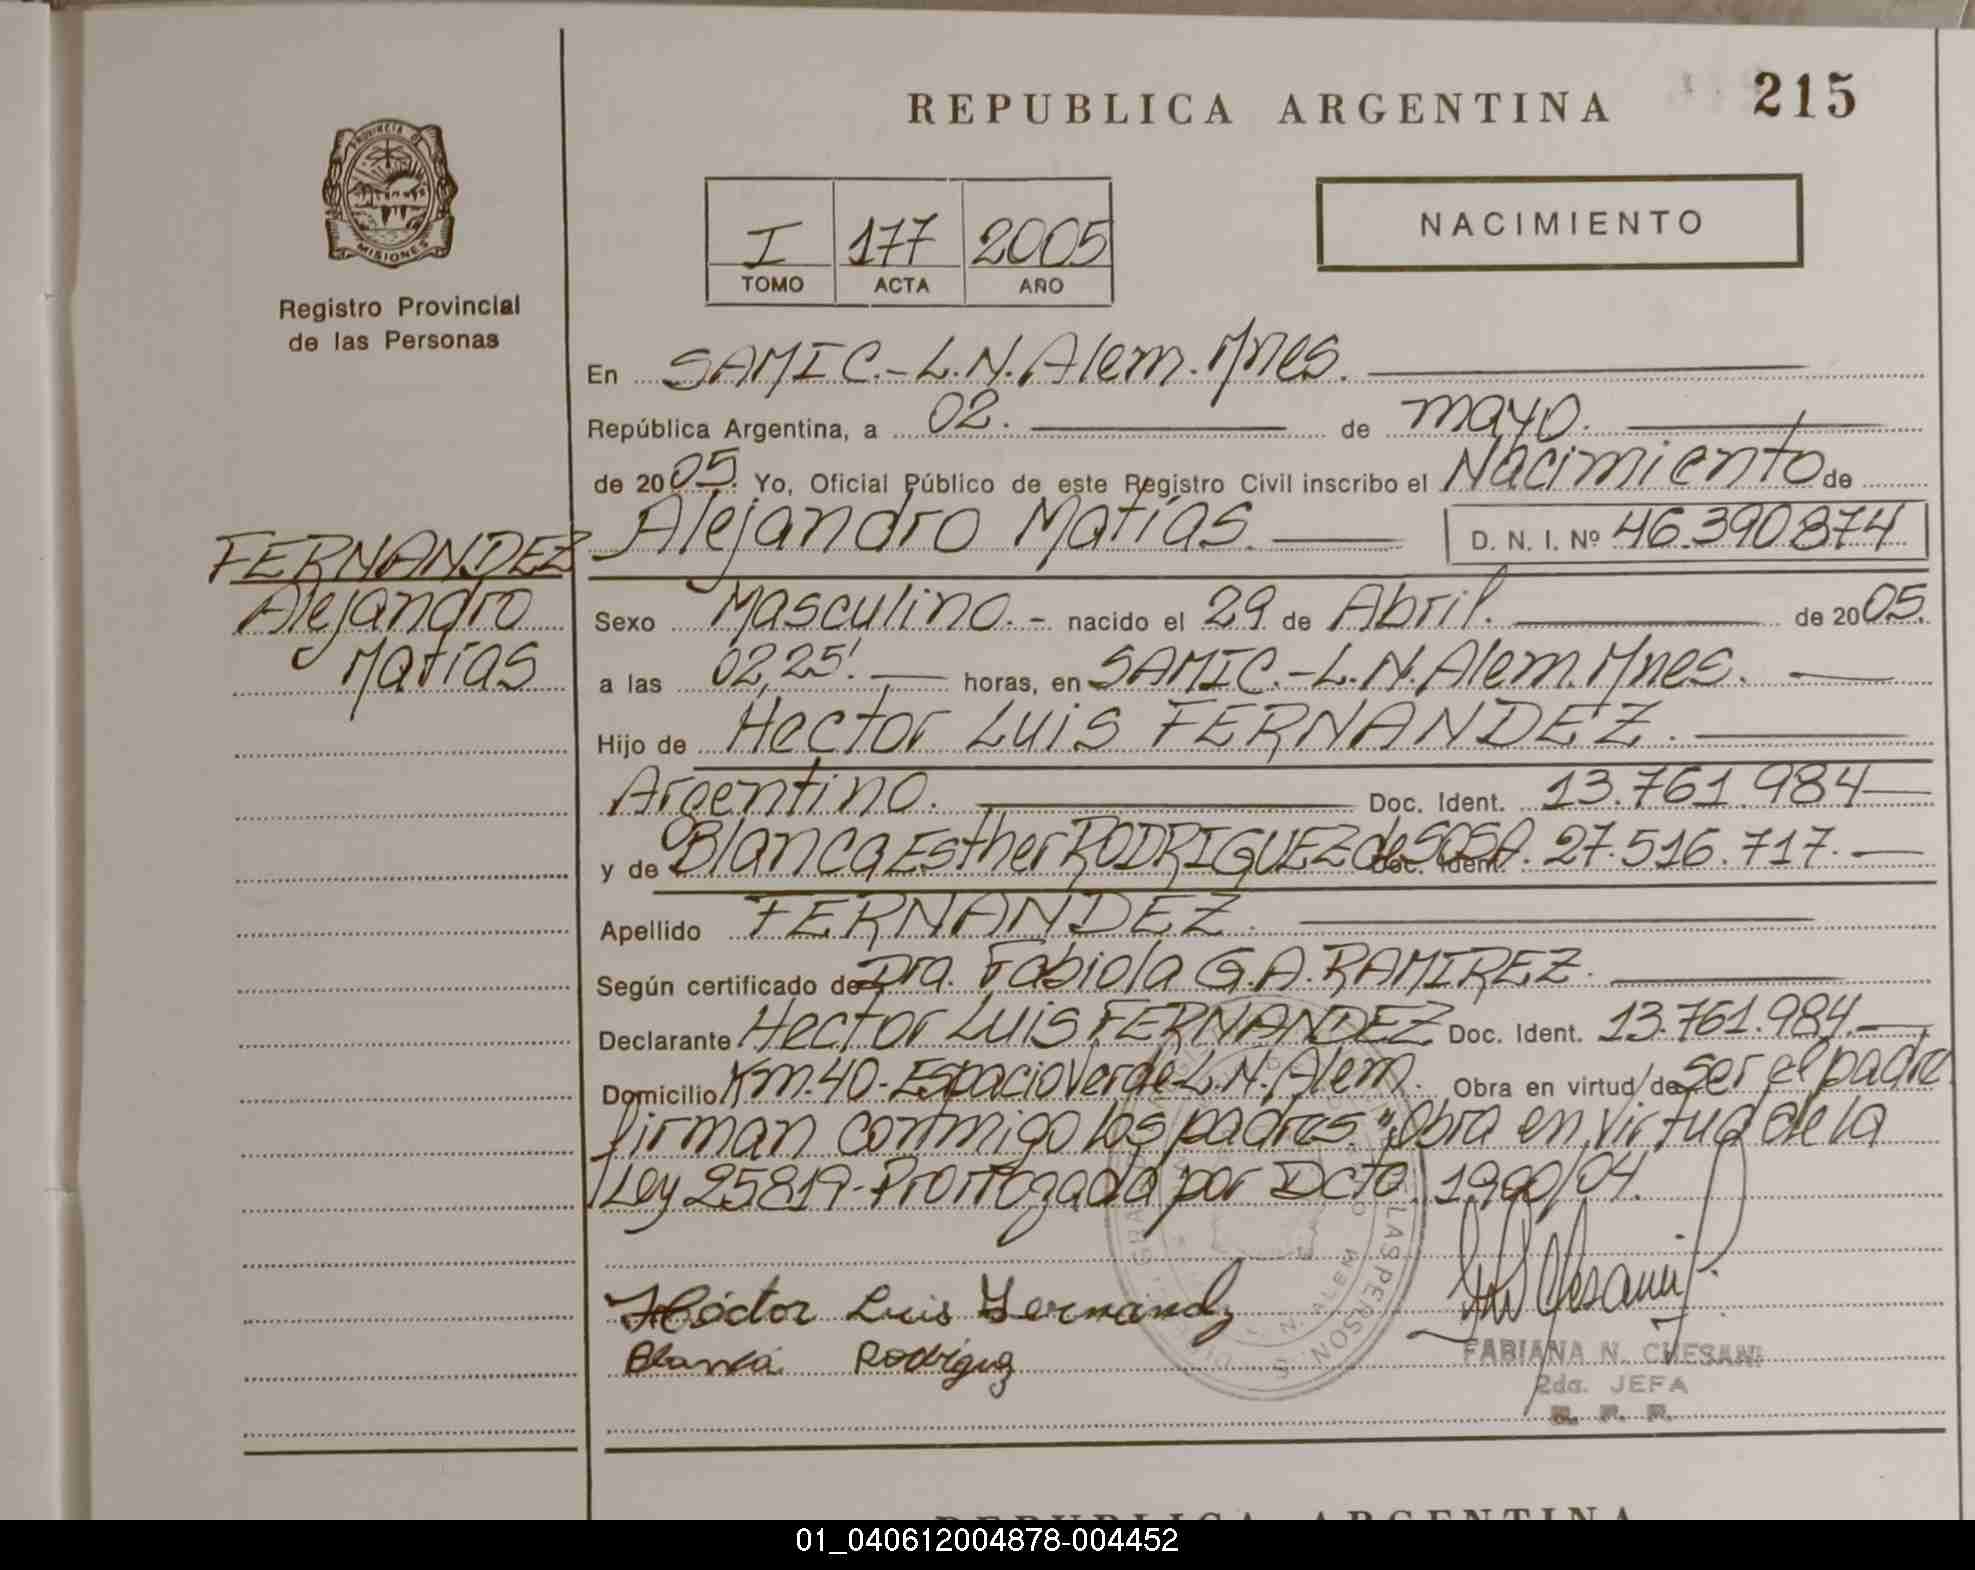 REPUBLICA ARGENTINA
215
PROVINCIA DE
MISIONES
Registro Provincial
de las Personas
I 177 2005
TOMO ACTA AÑO
NACIMIENTO
En SAMIC.-L.N.Alem.Mnes.
República Argentina, a 02. de mayo.
de 2005. Yo, Oficial Público de este Registro Civil inscribo el Nacimiento de
Alejandro Matías. D. N. I. Nº 46.390.874
FERNANDEZ
Alejandro
Matías
Sexo Masculino.- nacido el 29 de Abril. de 2005.
a las 02,25'. horas, en SAMIC.-L.N.Alem.Mnes.
Hijo de Hector Luis FERNANDEZ.
Argentino. Doc. Ident. 13.761.984
y de Blanca Esther RODRIGUEZ de SOSA. Doc. Ident. 27.516.717.
Apellido FERNANDEZ.
Según certificado de Dra. Fabiola G.A. RAMIREZ.
Declarante Hector Luis FERNANDEZ Doc. Ident. 13.761.984.
Domicilio Km.40-Espacio Verde-L.N.Alem. Obra en virtud de ser el padre
firman conmigo los padres. "Obra en virtud de la
Ley 25819-Prorrogada por Dcto. 1900/04.
LAS PERSONAS
N. ALEM
Héctor Luis Fernandz
Blanca Rodriguz
FABIANA N. CHESANI
2da. JEFA
R. P. P.
REPUBLICA ARGENTINA
01_040612004878-004452